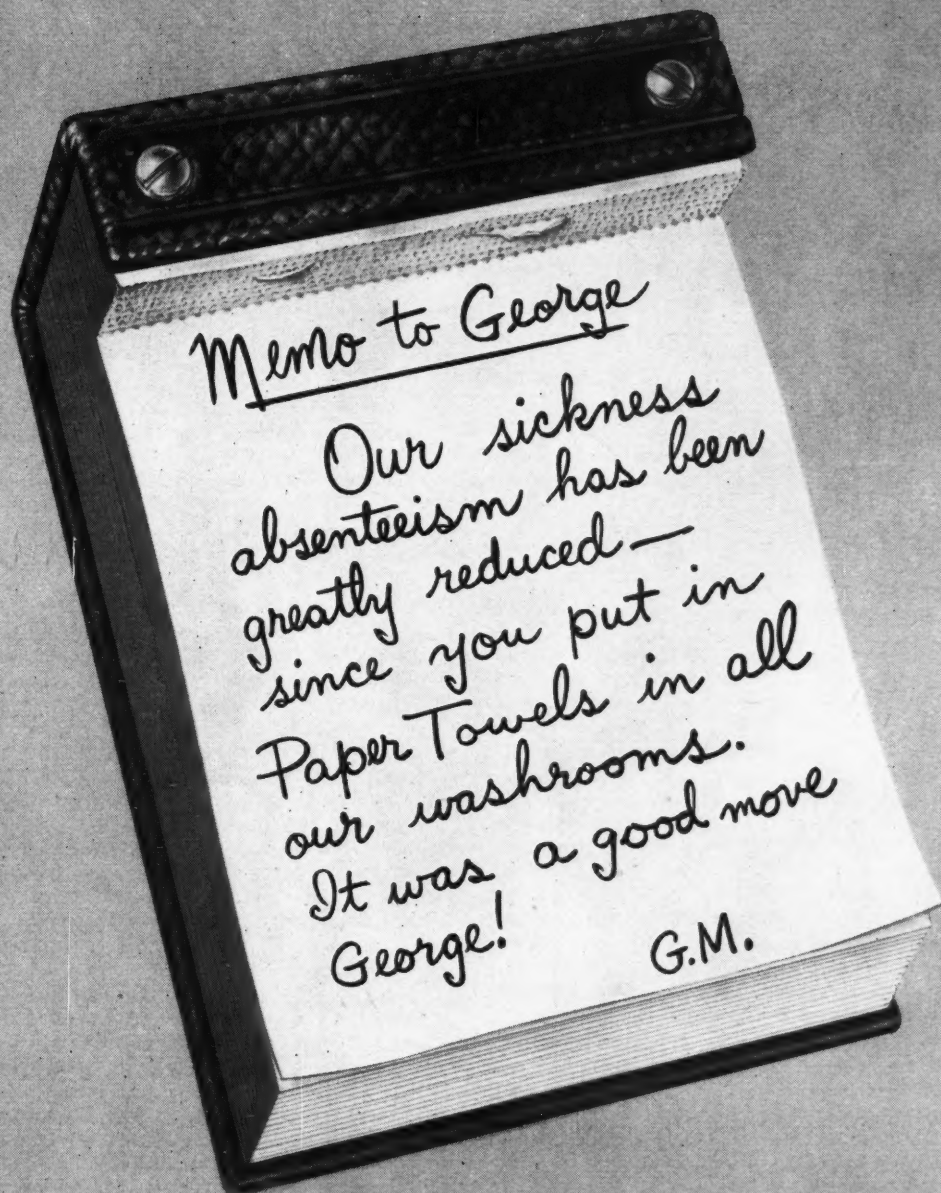 Memo to George
Our sickness
absenteeism has been
greatly reduced—
since you put in
Paper Towels in all
our washrooms.
It was a good move
George!
G.M.